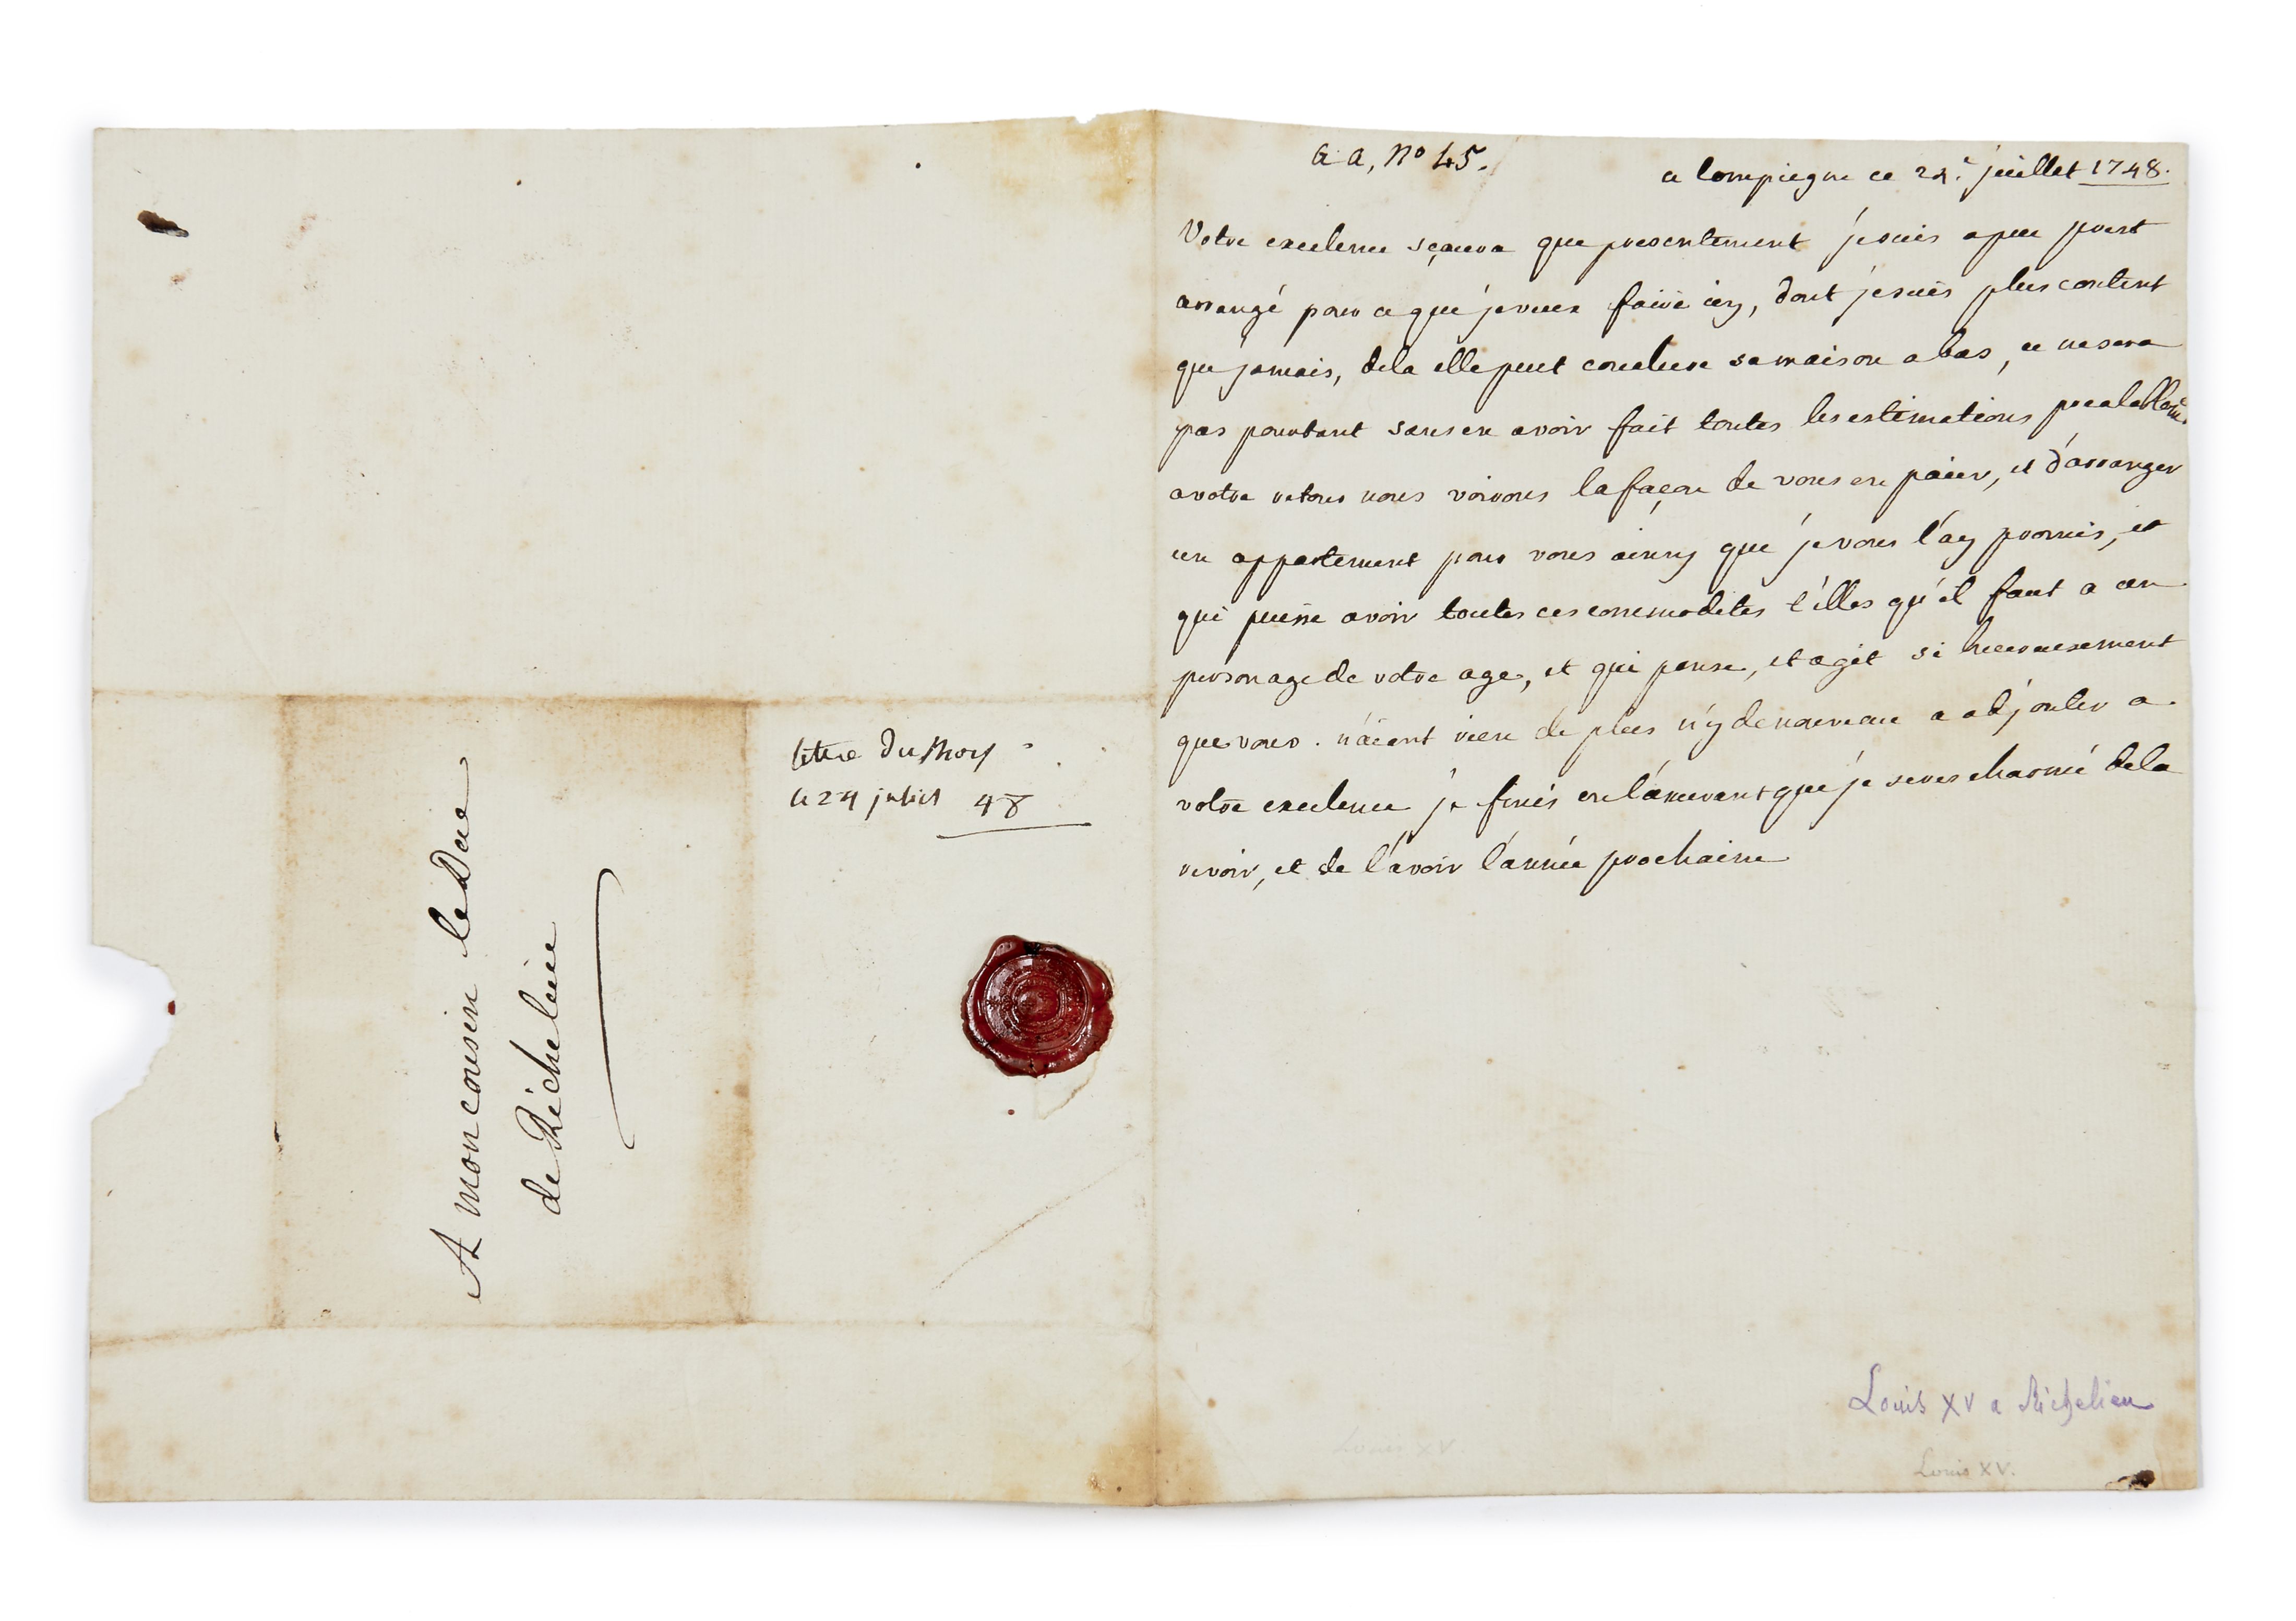 A mon cousin le Duc
de Richelieu
lettre du Roy
le 24 juliet 48
a a, no 45.
a Compiegne ce 24.e juillet 1748.
Votre excelence sçaura que presentement je suis a peu prest
arrangé pour ce que je veux faire icy, dont je suis plus content
que jamais, de la elle peut conclure sa maison a bas, ce ne sera
pas pourtant sans en avoir fait toutes les estimations prealablem.
a votre retour nous voirons la façon de vous en païer, et d'arranger
un appartement pour vous ainsy que je vous l'ay promis, et
qui puisse avoir toutes ces commodités t'elles qu'il faut a un
personage de votre age, et qui pense, et agit si heureusement
que vous. n'aïant rien de plus n'y de nouveau a adjouter a
votre excelence je finis en l'assurant que je serés charmé de la
revoir, et de l'avoir l'année prochaine
Louis XV a Richelieu
Louis XV.
Louis XV.